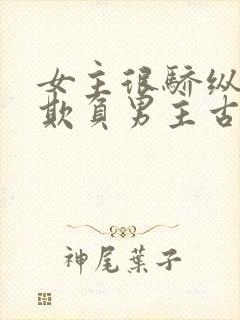 女主很骄纵
欺负男主古
神尾葉子